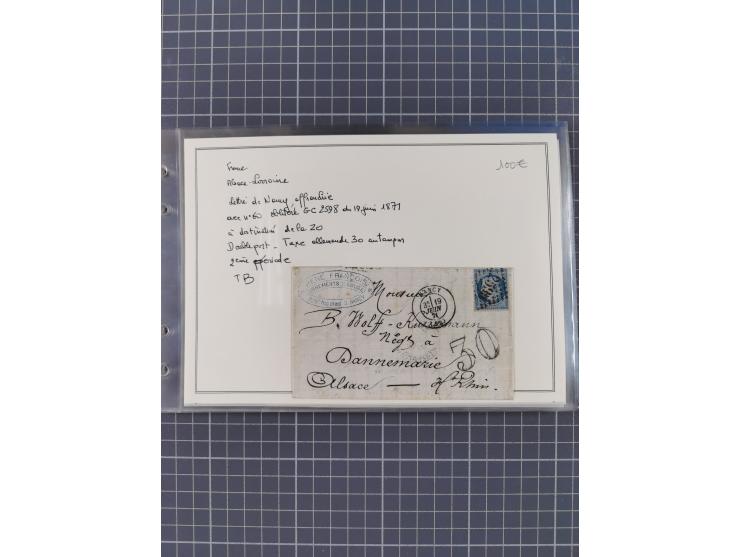 France
100€
Alsace-Lorraine
Lettre de Nancy affranchie
avec n°60 oblitéré GC 2598 du 19 juin 1871
à destination de la Zo
Double port - Taxe allemande 30 au tampon
2ème période
TB
NANCY
19
JUIN
71
Monsieur
B. Wolf-
Négt à
Dannemarie
30
Alsace — Ht Rhin.